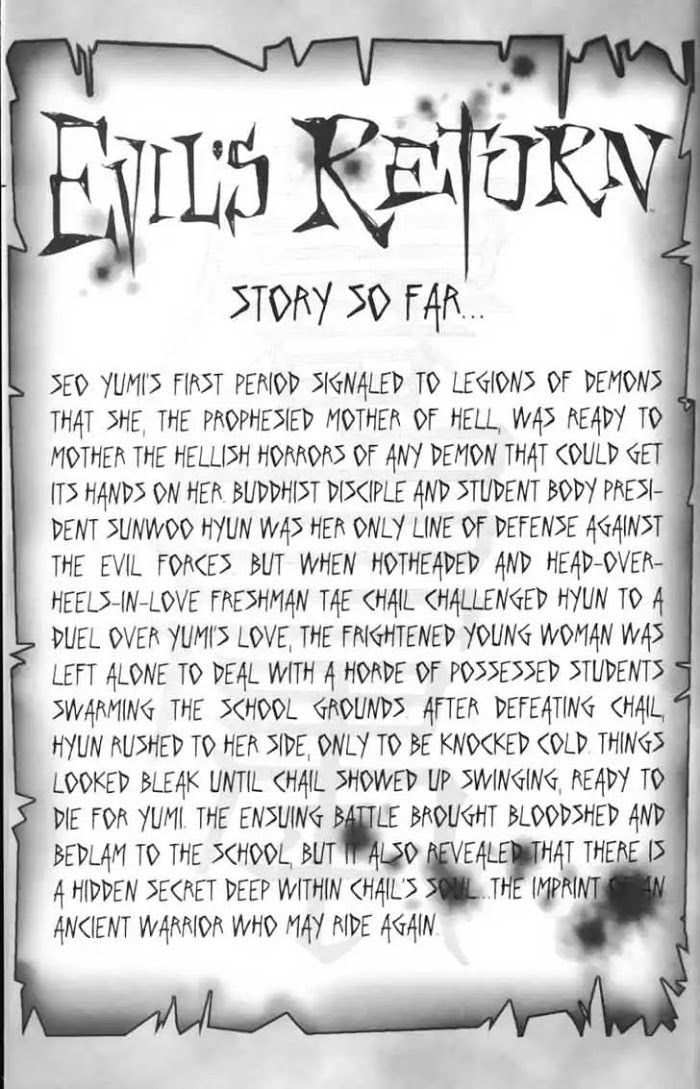 EVIL'S RETURN
STORY SO FAR...
SEO YUMI'S FIRST PERIOD SIGNALED TO LEGIONS OF DEMONS
THAT SHE, THE PROPHESIED MOTHER OF HELL, WAS READY TO
MOTHER THE HELLISH HORRORS OF ANY DEMON THAT COULD GET
ITS HANDS ON HER. BUDDHIST DISCIPLE AND STUDENT BODY PRESI-
DENT SUNWOO HYUN WAS HER ONLY LINE OF DEFENSE AGAINST
THE EVIL FORCES BUT WHEN HOTHEADED AND HEAD-OVER-
HEELS-IN-LOVE FRESHMAN TAE CHAIL CHALLENGED HYUN TO A
DUEL OVER YUMI'S LOVE, THE FRIGHTENED YOUNG WOMAN WAS
LEFT ALONE TO DEAL WITH A HORDE OF POSSESSED STUDENTS
SWARMING THE SCHOOL GROUNDS. AFTER DEFEATING CHAIL,
HYUN RUSHED TO HER SIDE, ONLY TO BE KNOCKED COLD. THINGS
LOOKED BLEAK UNTIL CHAIL SHOWED UP SWINGING, READY TO
DIE FOR YUMI. THE ENSUING BATTLE BROUGHT BLOODSHED AND
BEDLAM TO THE SCHOOL, BUT IT ALSO REVEALED THAT THERE IS
A HIDDEN SECRET DEEP WITHIN CHAIL'S SOUL...THE IMPRINT OF AN
ANCIENT WARRIOR WHO MAY RIDE AGAIN.